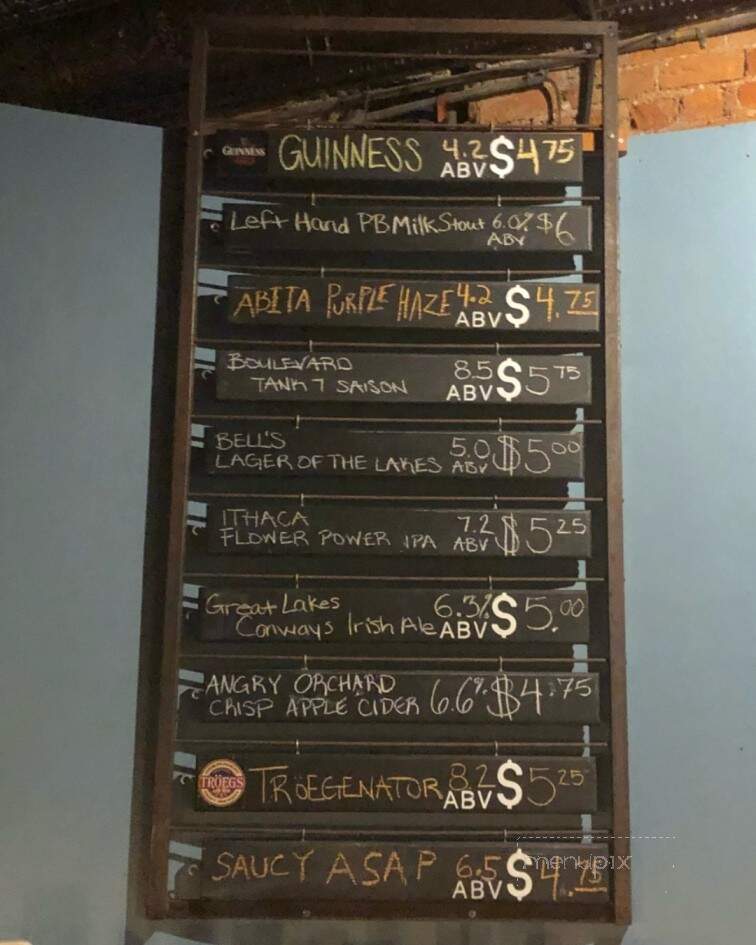 GUINNESS GUINNESS 4.2 ABV $4.75
Left Hand PB Milk Stout 6.0% ABV $6
ABITA PURPLE HAZE 4.2 ABV $4.75
BOULEVARD
TANK 7 SAISON 8.5 ABV $5 75
BELL'S
LAGER OF THE LAKES 5.0 ABV $5 00
ITHACA
FLOWER POWER IPA 7.2 ABV $5 25
Great Lakes
Conways Irish Ale 6.3% ABV $5.00
ANGRY ORCHARD
CRISP APPLE CIDER 6.6% $4.75
TRÖEGS TRöEGENATOR 8.2 ABV $5 25
SAUCY ASAP 6.5 ABV $4.75
menupix